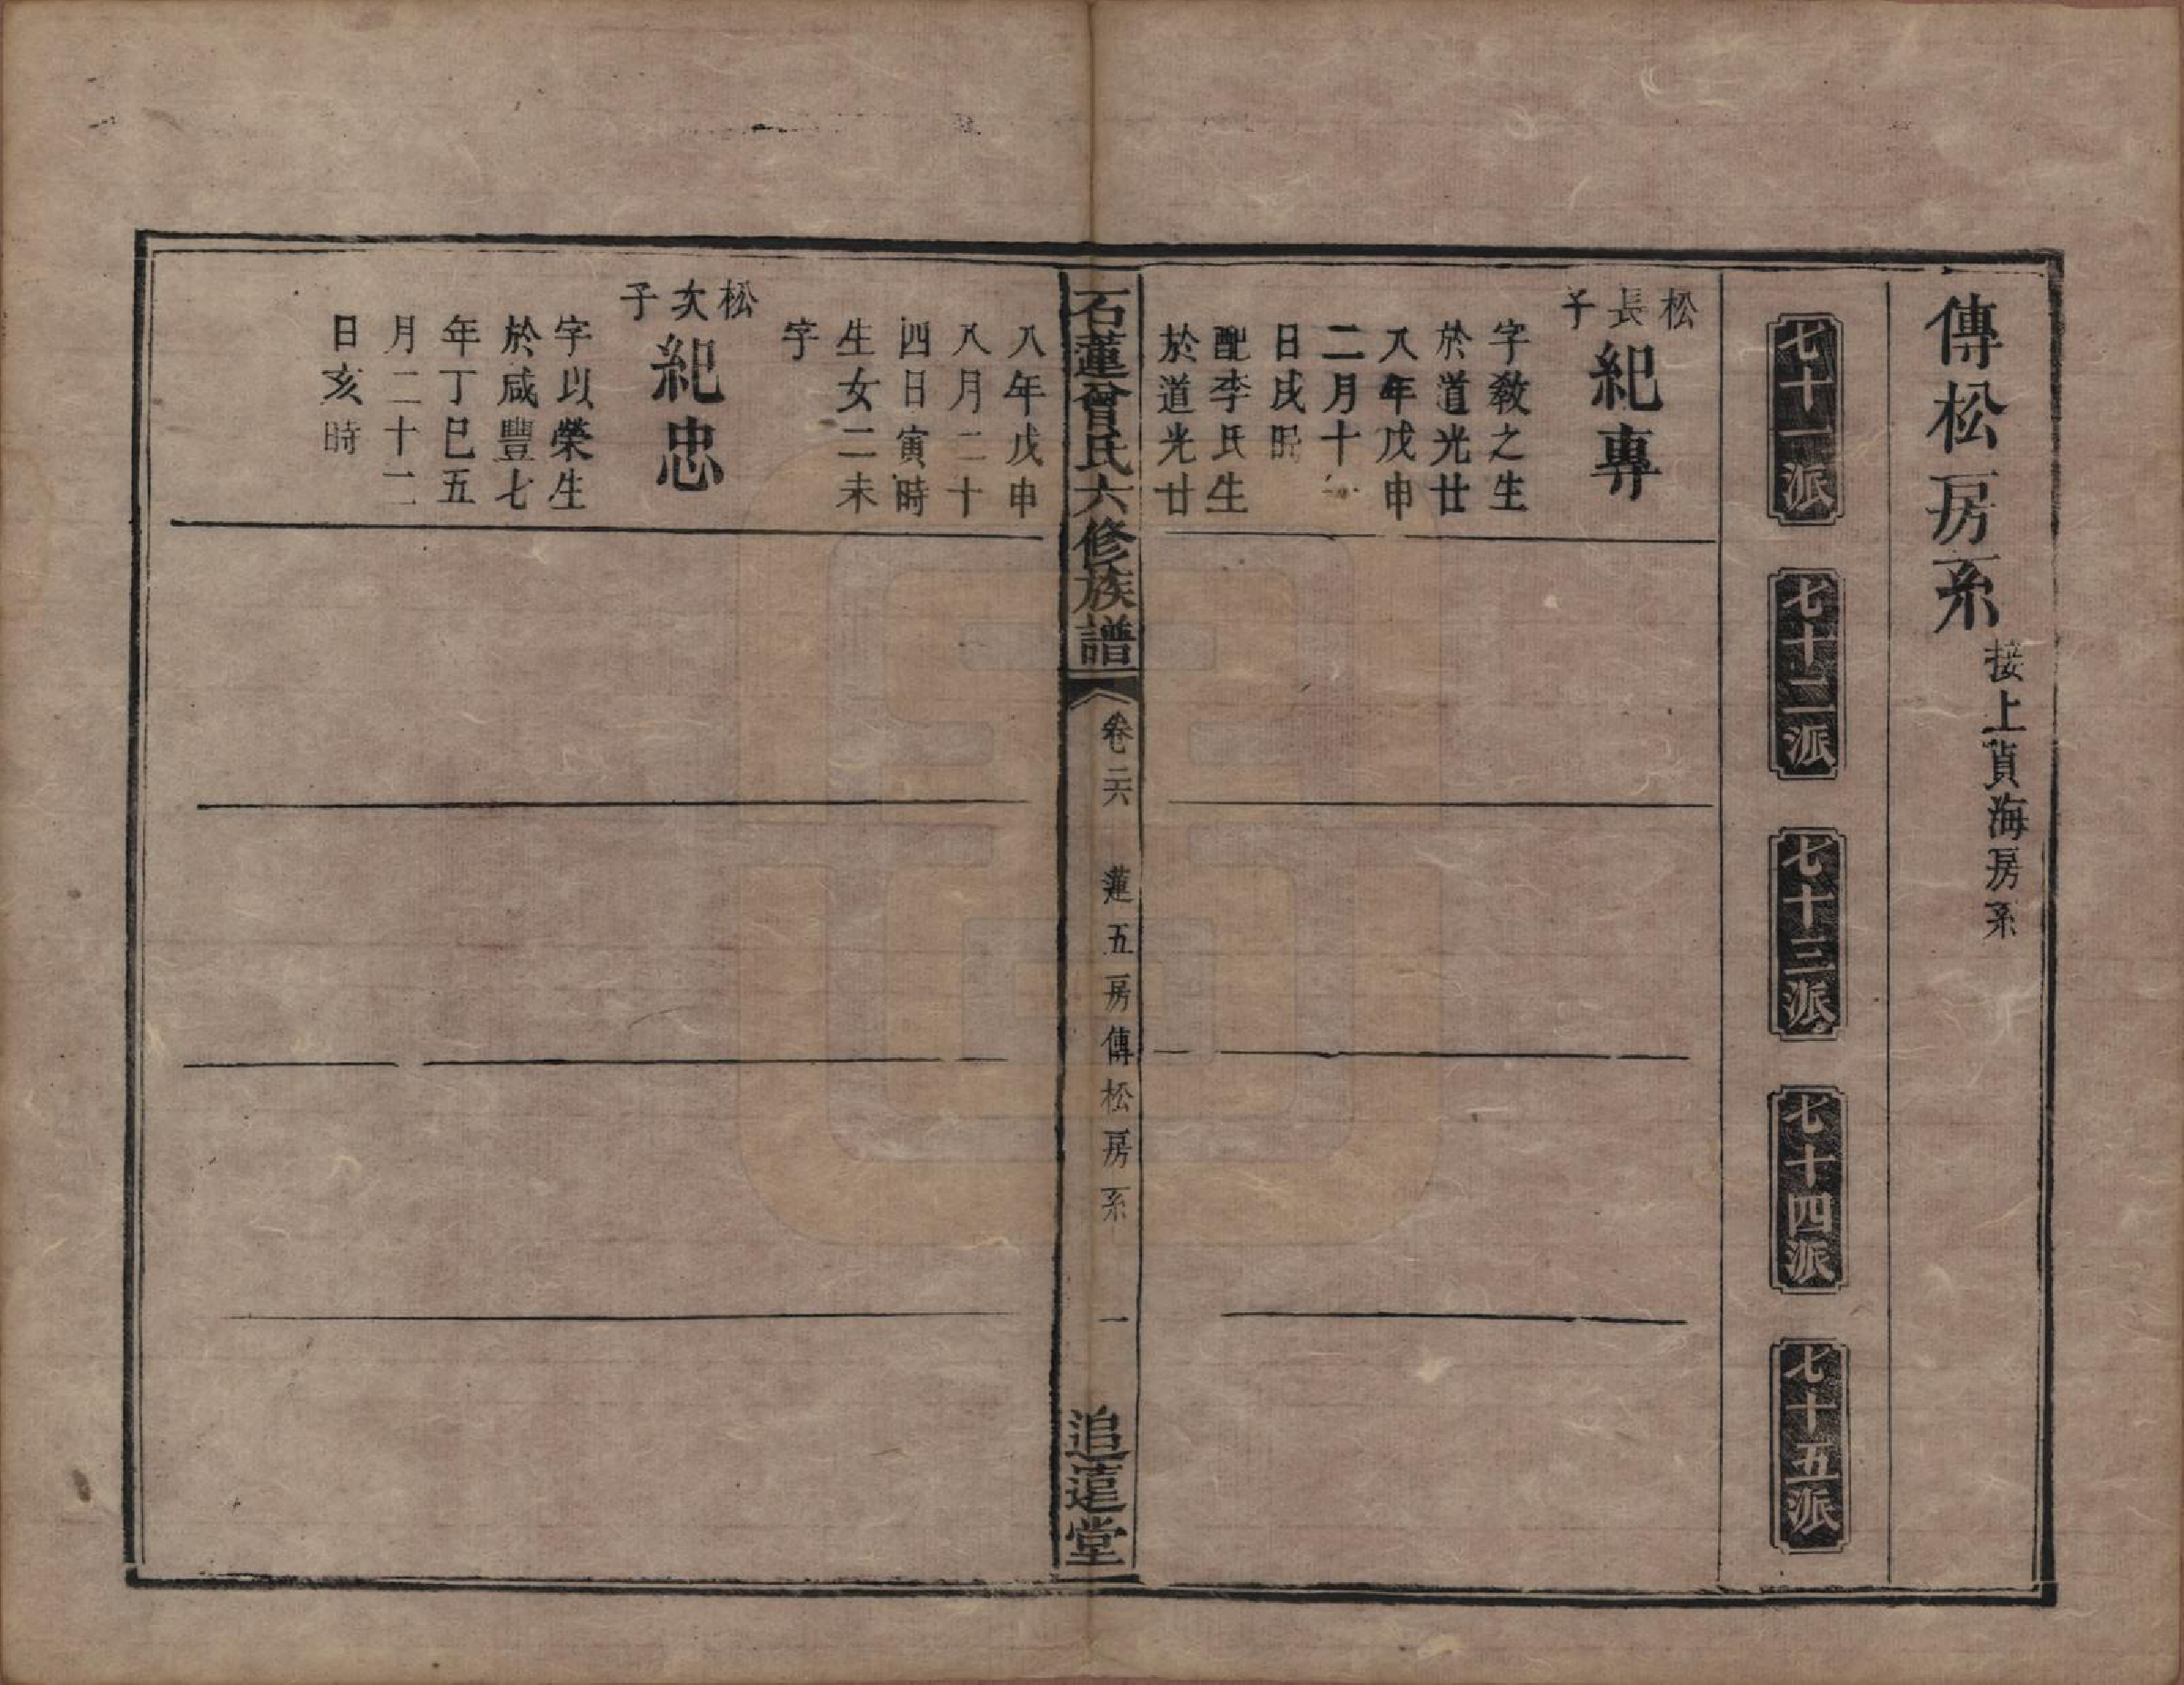 傳松房系
接上貞海房系
七十一派
七十二派
七十三派
七十四派
七十五派
松長子
紀專
字敎之生
於道光廿
八年戊申
二月十
日戌時
配李氏生
於道光廿
石蓮曾氏六修族譜
卷二六
蓮五房傳松房系
一
追遠堂
八年戊申
八月二十
四日寅時
生女二未
字
松次子
紀忠
字以榮生
於咸豐七
年丁巳五
月二十二
日亥時